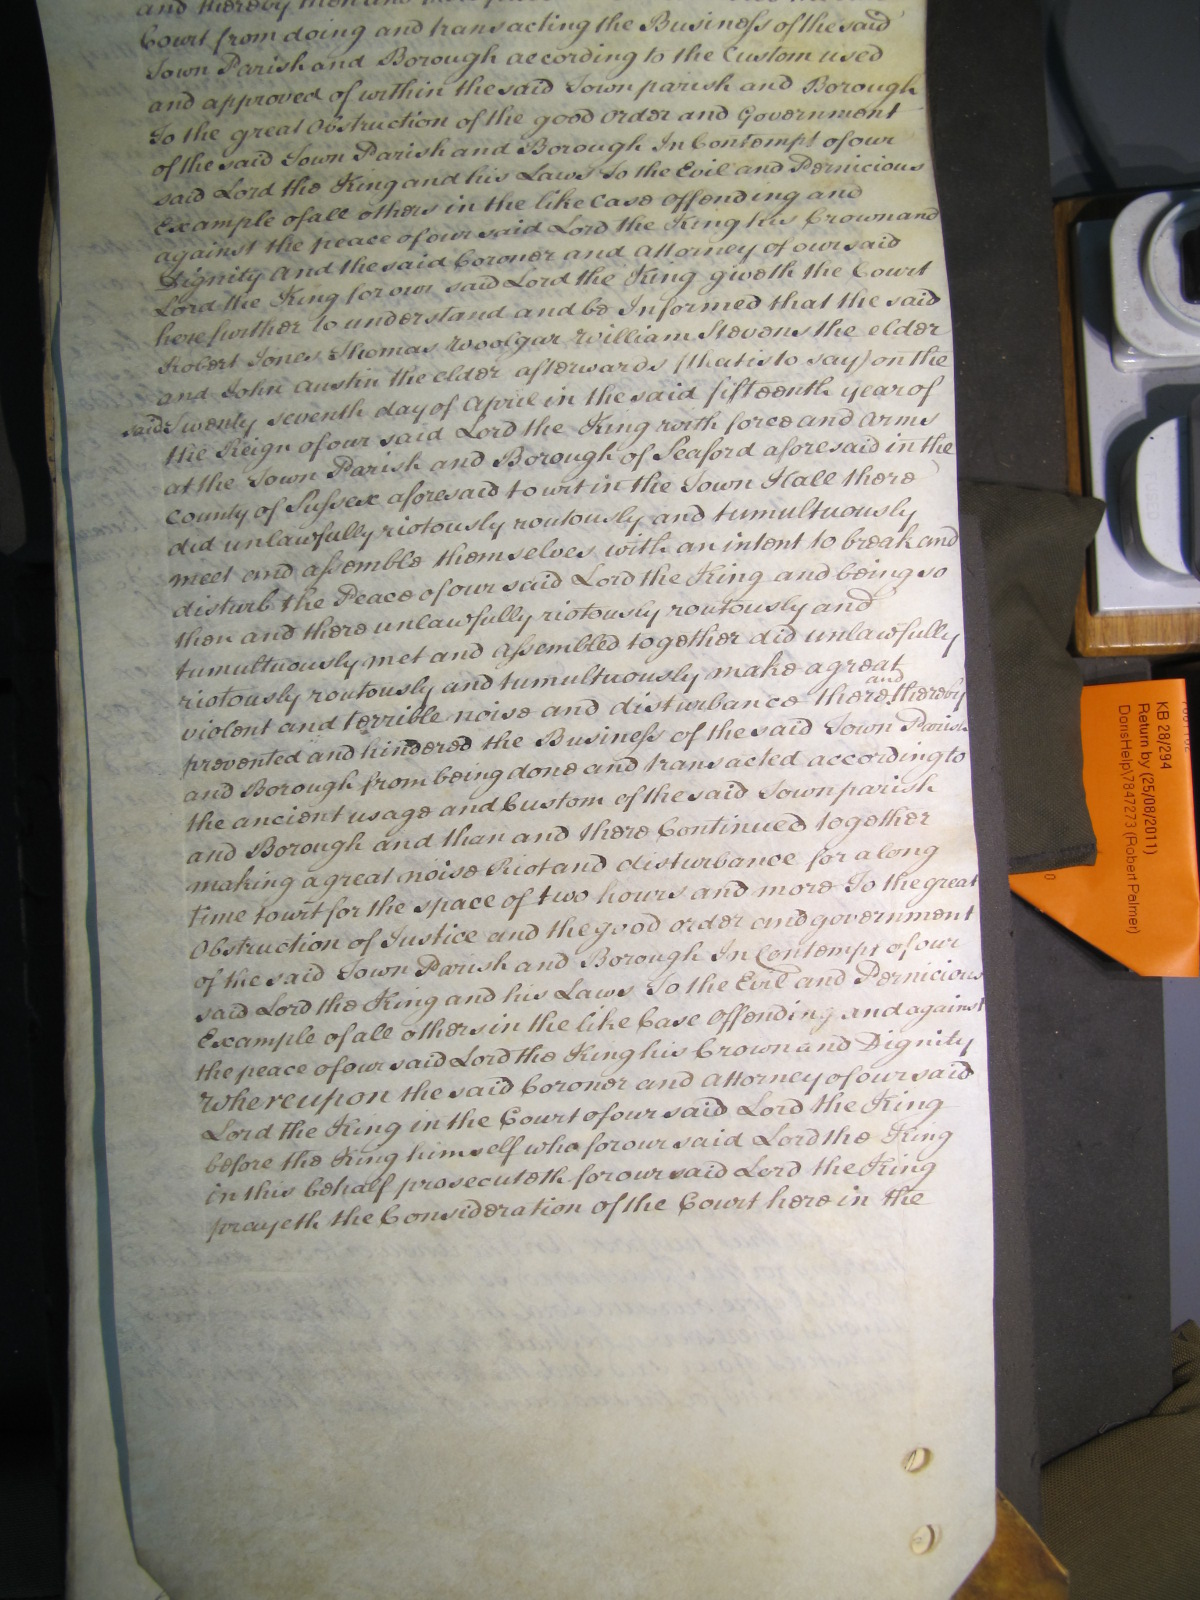 and thereby then and there
Court from doing and transacting the Business of the said
Town Parish and Borough according to the Custom used
and approved of within the said Town parish and Borough
To the great Obstruction of the good order and Government
of the said Town Parish and Borough In Contempt of our
said Lord the King and his Laws To the Evil and Pernicious
Example of all others in the like Case Offending and
against the peace of our said Lord the King his Crown and
Dignity And the said Coroner and Attorney of our said
Lord the King for our said Lord the King giveth the Court
here further to understand and be Informed that the said
Robert Jones Thomas Woolgar William Stevens the elder
and John Austin the elder afterwards (that is to say) on the
said Twenty seventh day of April in the said fifteenth year of
the Reign of our said Lord the King with force and Arms
at the Town Parish and Borough of Seaford aforesaid in the
County of Sussex aforesaid to wit in the Town Hall there
did unlawfully riotously routously and tumultuously
meet and assemble themselves with an intent to break and
disturb the Peace of our said Lord the King and being so
then and there unlawfully riotously routously and
tumultuously met and assembled together did unlawfully
riotously routously and tumultuously make a great
violent and terrible noise and disturbance there and thereby
prevented and hindered the Business of the said Town Parish
and Borough from being done and transacted according to
the ancient usage and Custom of the said Town parish
and Borough and than and there Continued together
making a great noise Riot and disturbance for a long
time towit for the space of two hours and more To the great
Obstruction of Justice and the good order and government
of the said Town Parish and Borough In Contempt of our
said Lord the King and his Laws To the Evil and Pernicious
Example of all others in the like Case Offending and against
the peace of our said Lord the King his Crown and Dignity
Whereupon the said Coroner and Attorney of our said
Lord the King in the Court of our said Lord the King
before the King himself who for our said Lord the King
in this behalf prosecuteth for our said Lord the King
prayeth the Consideration of the Court here in the
KB 28/294
Return by (25/08/2011)
DorisHelp\7847273 (Robert Palmer)